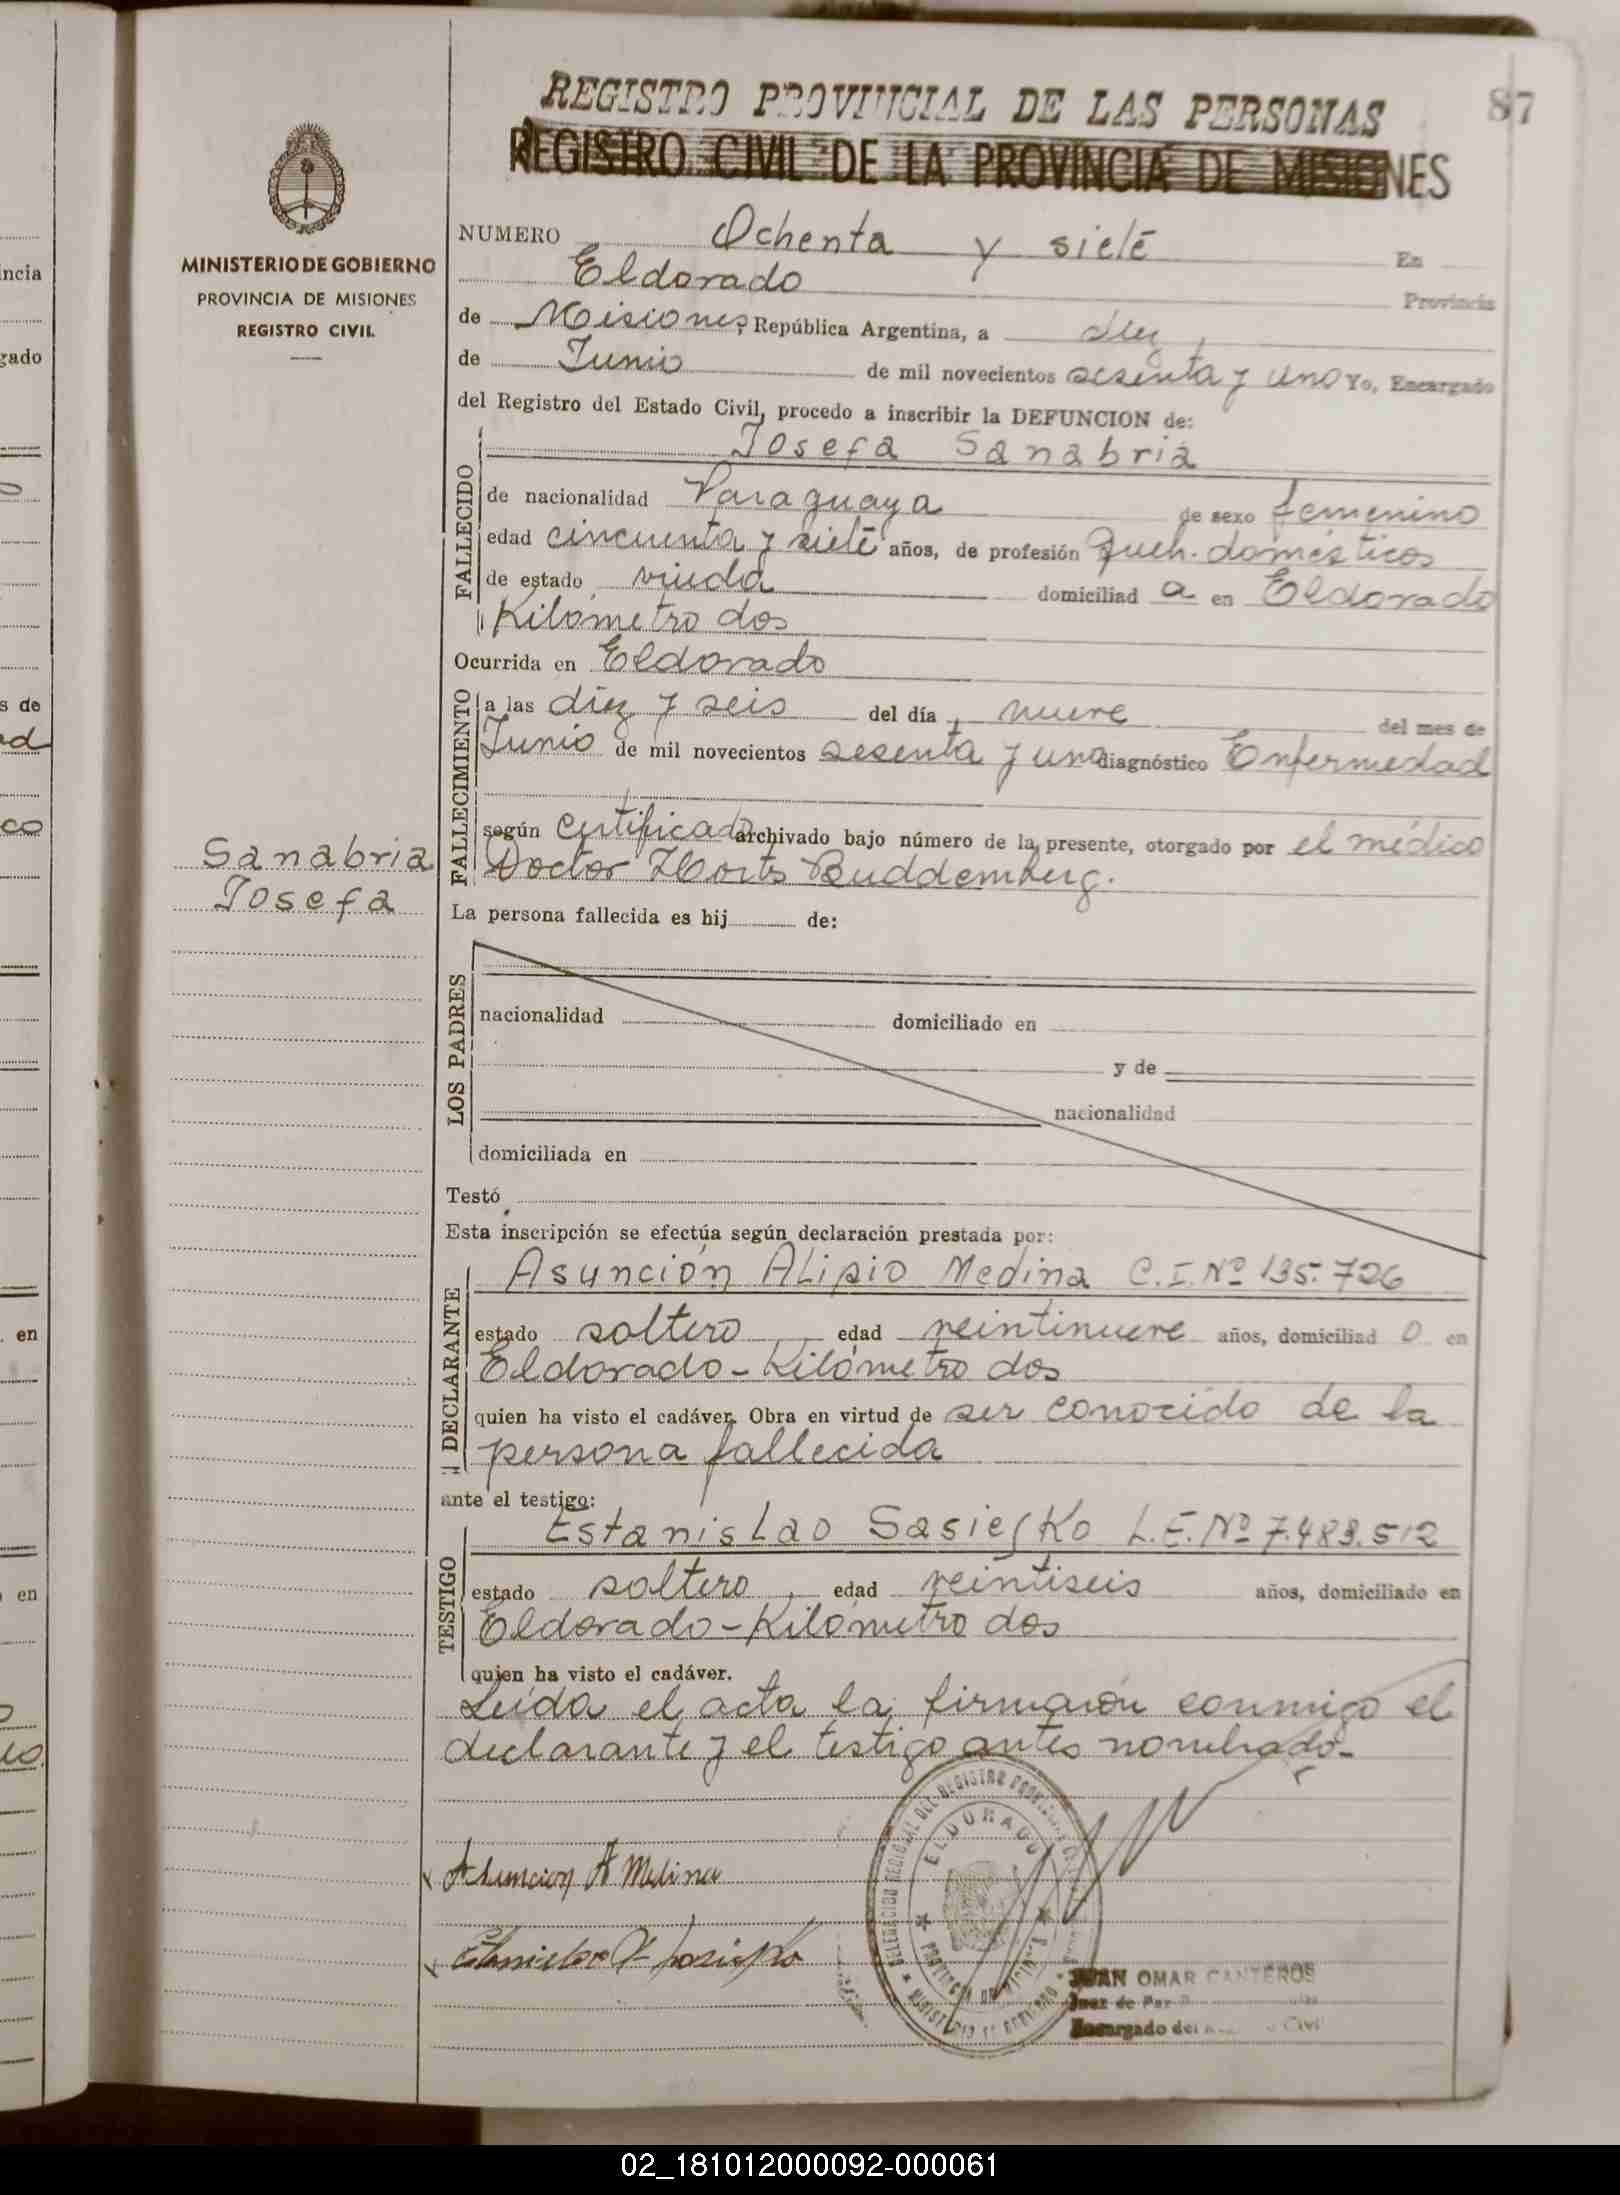 REGISTRO PROVINCIAL DE LAS PERSONAS
87
REGISTRO CIVIL DE LA PROVINCIA DE MISIONES
MINISTERIO DE GOBIERNO
PROVINCIA DE MISIONES
REGISTRO CIVIL
NUMERO Ochenta y siete En
Eldorado Provincia
de Misiones, República Argentina, a diez
de Junio de mil novecientos sesenta y uno Yo, Encargado
del Registro del Estado Civil, procedo a inscribir la DEFUNCION de:
Josefa Sanabria
FALLECIDO
de nacionalidad Paraguaya de sexo femenino
edad cincuenta y siete años, de profesión Queh. domésticos
de estado viuda domiciliad a en Eldorado
Kilómetro dos
Ocurrida en Eldorado
FALLECIMIENTO
a las diez y seis del día nueve del mes de
Junio de mil novecientos sesenta y uno diagnóstico Enfermedad
según certificado archivado bajo número de la presente, otorgado por el médico
Doctor Horts Buddemberg.
Sanabria
Josefa
La persona fallecida es hij de:
LOS PADRES
nacionalidad domiciliado en
y de
nacionalidad
domiciliada en
Testó
Esta inscripción se efectúa según declaración prestada por:
DECLARANTE
Asunción Alipio Medina C.I. Nº 135.726
estado soltero edad veintinueve años, domiciliad o en
Eldorado - Kilómetro dos
quien ha visto el cadáver. Obra en virtud de ser conocido de la
persona fallecida
ante el testigo:
TESTIGO
Estanislao Sasiesko L.E. Nº 7.483.512
estado soltero edad veintiseis años, domiciliado en
Eldorado - Kilómetro dos
quien ha visto el cadáver.
Leída el acta la firmaron conmigo el
declarante y el testigo antes nombrado.-
ELDORADO
Asuncion A Medina
JUAN OMAR CANTEROS
Juez de Paz
Encargado del Civil
ncia
gado
s de
ad
co
en
en
02_181012000092-000061